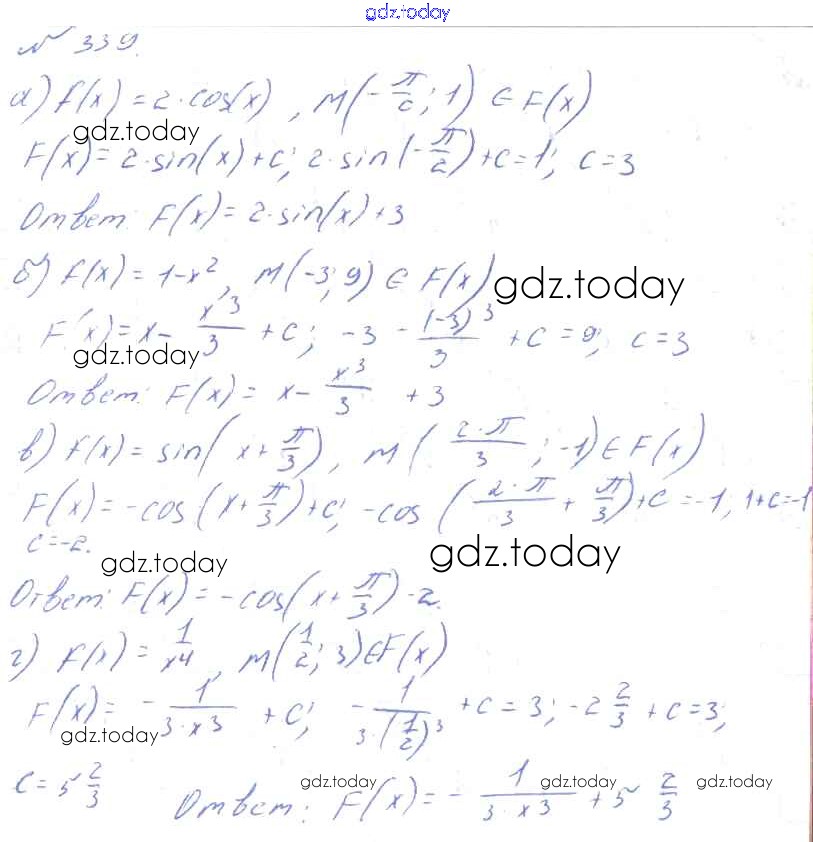 gdz.today
№ 339.
а) f(x) = 2·cos(x), M(-π/2; 1) ∈ F(x)
gdz.today
F(x) = 2·sin(x) + C; 2·sin(-π/2) + C = 1; C = 3
Ответ: F(x) = 2·sin(x) + 3
б) f(x) = 1-x², M(-3; 9) ∈ F(x)
gdz.today
F(x) = x - x³/3 + C; -3 - (-3)³/3 + C = 9; C = 3
gdz.today
Ответ: F(x) = x - x³/3 + 3
в) f(x) = sin(x + π/3), M(2·π/3; -1) ∈ F(x)
F(x) = -cos(x + π/3) + C; -cos(2·π/3 + π/3) + C = -1; 1 + C = -1
C = -2.
gdz.today
gdz.today
Ответ: F(x) = -cos(x + π/3) - 2.
г) f(x) = 1/x⁴, M(1/2; 3) ∈ F(x)
F(x) = - 1/(3·x³) + C; - 1/(3·(1/2)³) + C = 3; -2 2/3 + C = 3;
gdz.today
gdz.today
C = 5 2/3
gdz.today gdz.today gdz.today
Ответ: F(x) = - 1/(3·x³) + 5 2/3